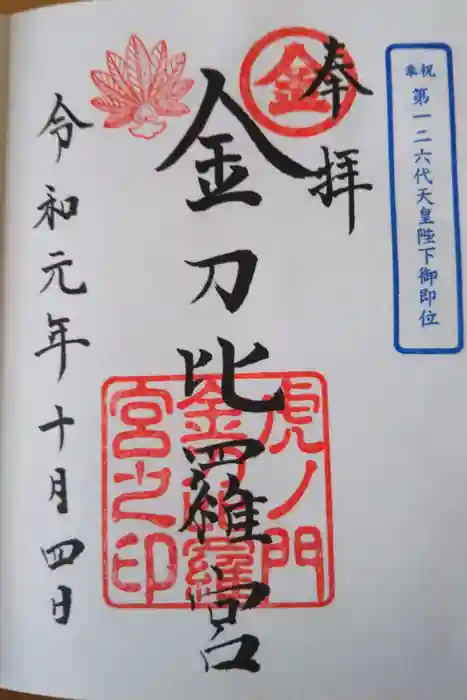 奉祝 第一二六代天皇陛下御即位
奉拝
金
金刀比羅宮
虎ノ門
金刀比羅
宮之印
令和元年十月四日